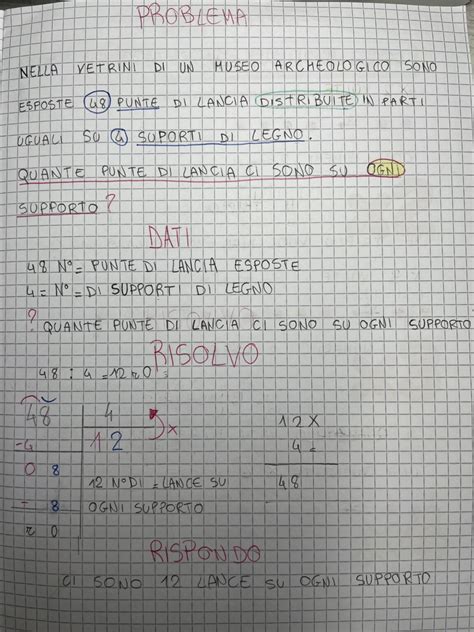 PROBLEMA
NELLA VETRINI DI UN MUSEO ARCHEOLOGICO SONO
ESPOSTE 48 PUNTE DI LANCIA DISTRIBUITE IN PARTI
UGUALI SU 4 SUPORTI DI LEGNO.
QUANTE PUNTE DI LANCIA CI SONO SU OGNI
SUPPORTO?
DATI
48 N°= PUNTE DI LANCIA ESPOSTE
4 = N°= DI SUPPORTI DI LEGNO
? QUANTE PUNTE DI LANCIA CI SONO SU OGNI SUPPORTO
RISOLVO
48 : 4 = 12 r 0
48 4 x 12 x
-4 12 4 =
0 8 12 N° DI = LANCE SU 48
- 8 OGNI SUPPORTO
r 0
RISPONDO
CI SONO 12 LANCE SU OGNI SUPPORTO